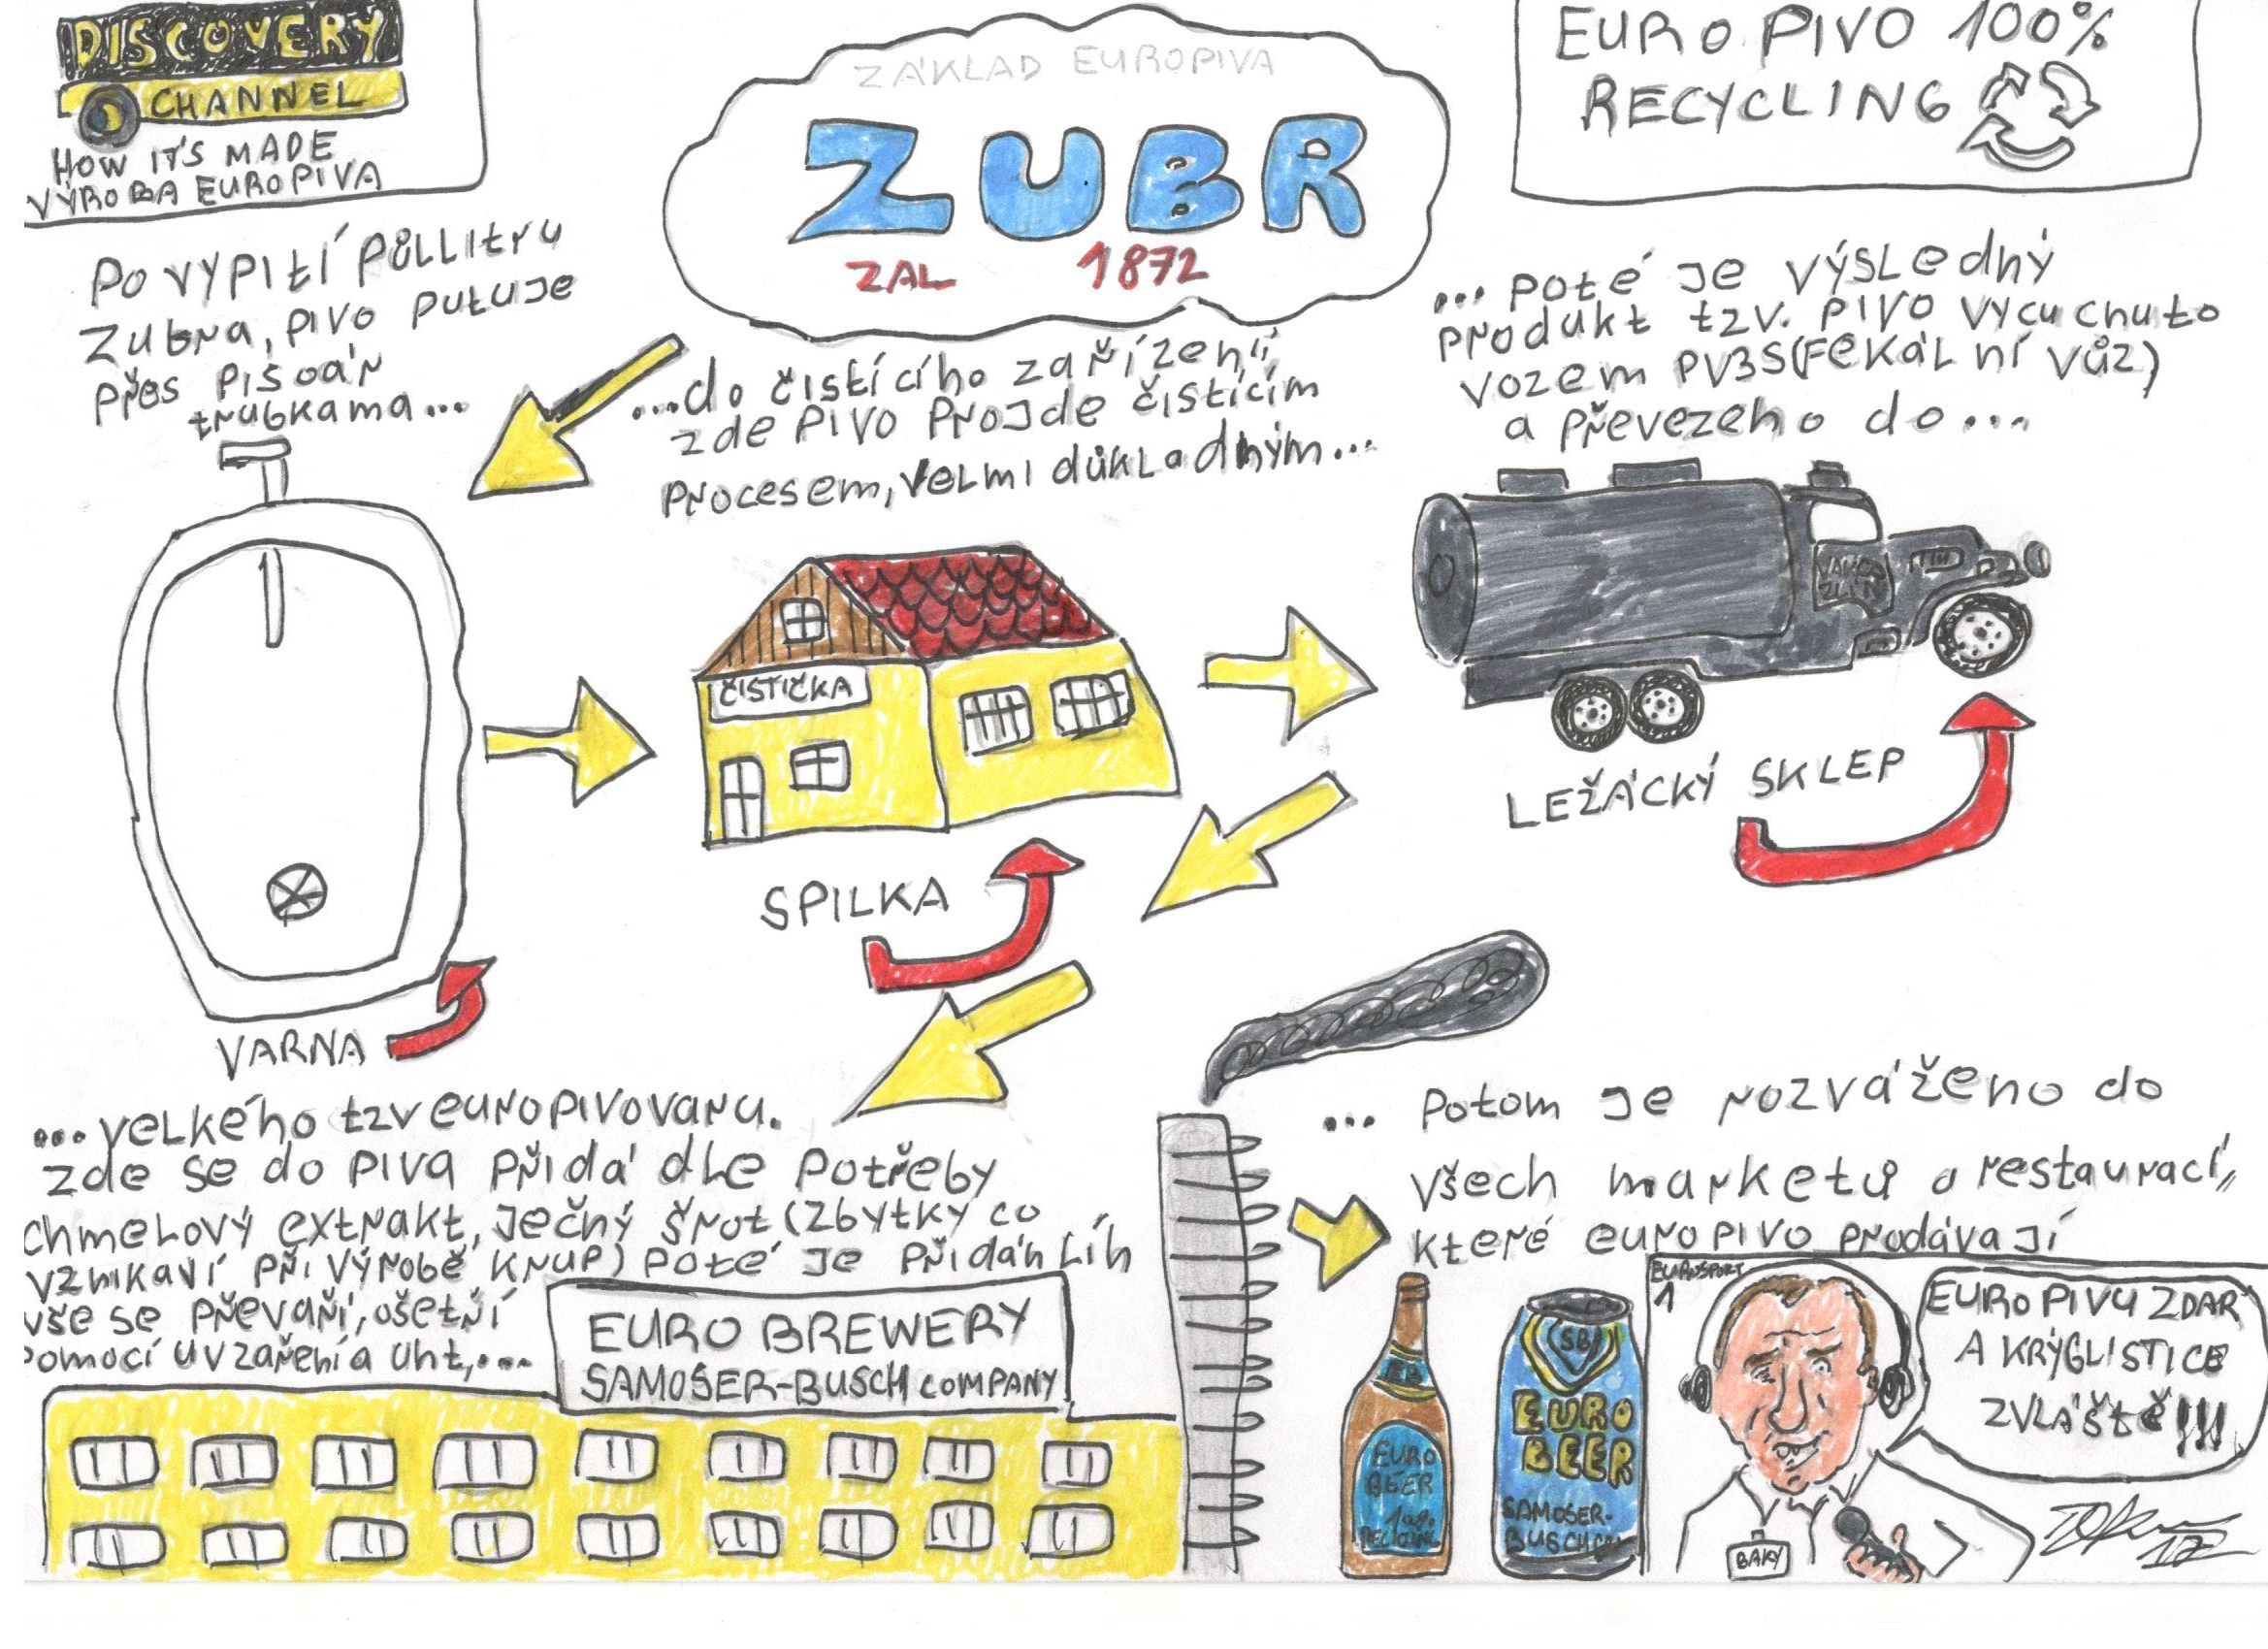 DISCOVERY
CHANNEL
HOW IT'S MADE
VÝROBA EUROPIVA
ZÁKLAD EUROPIVA
ZUBR
ZAL 1872
EURO PIVO 100%
RECYCLING
PO VYPITÍ PŮLLITRU
ZUBRA, PIVO PUTUJE
PŘES PISOÁR
TRUBKAMA...
...do čistícího zařízení,
zde PIVO Projde čistícím
Procesem, velmi důkladným...
...poté je výsledný
produkt tzv. PIVO vycucnuto
vozem PV3S (fekální vůz)
a převezeno do...
ČISTIČKA
VARNA
SPILKA
LEŽÁCKÝ SKLEP
...velkého tzv europivovaru.
Zde se do piva přidá dle potřeby
chmelový extrakt, ječný šrot (zbytky co
vznikaví při výrobě krup) poté je přidán líh
vše se převaří, ošetří
pomocí uv záření a uht,...
EURO BREWERY
SAMOŠER-BUSCH COMPANY
... potom je rozváženo do
všech marketů a restaurací,
které euro pivo prodávají
EURO
BEER
SB
EURO
BEER
SAMOŠER-
BUSCH
EUROSPORT
1
EURO PIVU ZDAR
A KRÝGLISTICE
ZVLÁŠTĚ!!!
BAKY